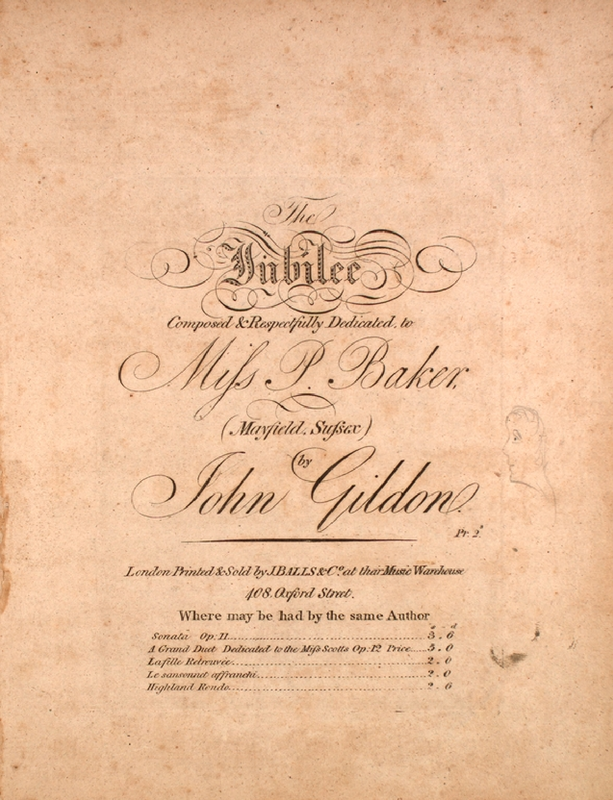 The
Jubilee
Composed & Respectfully Dedicated, to
Miſs P. Baker,
(Mayfield, Suſsex)
by
John Gildon.
Pr. 2.ˢ
London Printed & Sold by J. BALLS & Cº. at their Music Warehouse
408, Oxford Street.
Where may be had by the same Author
s - d
Sonata Op: 11 3 . 6
A Grand Duet Dedicated to the Miſs Scotts Op: 12 Price 5 . 0
La fille Retrouvée 2 . 0
Le sansonnet affranchi 2 . 0
Highland Rondo 2 . 6